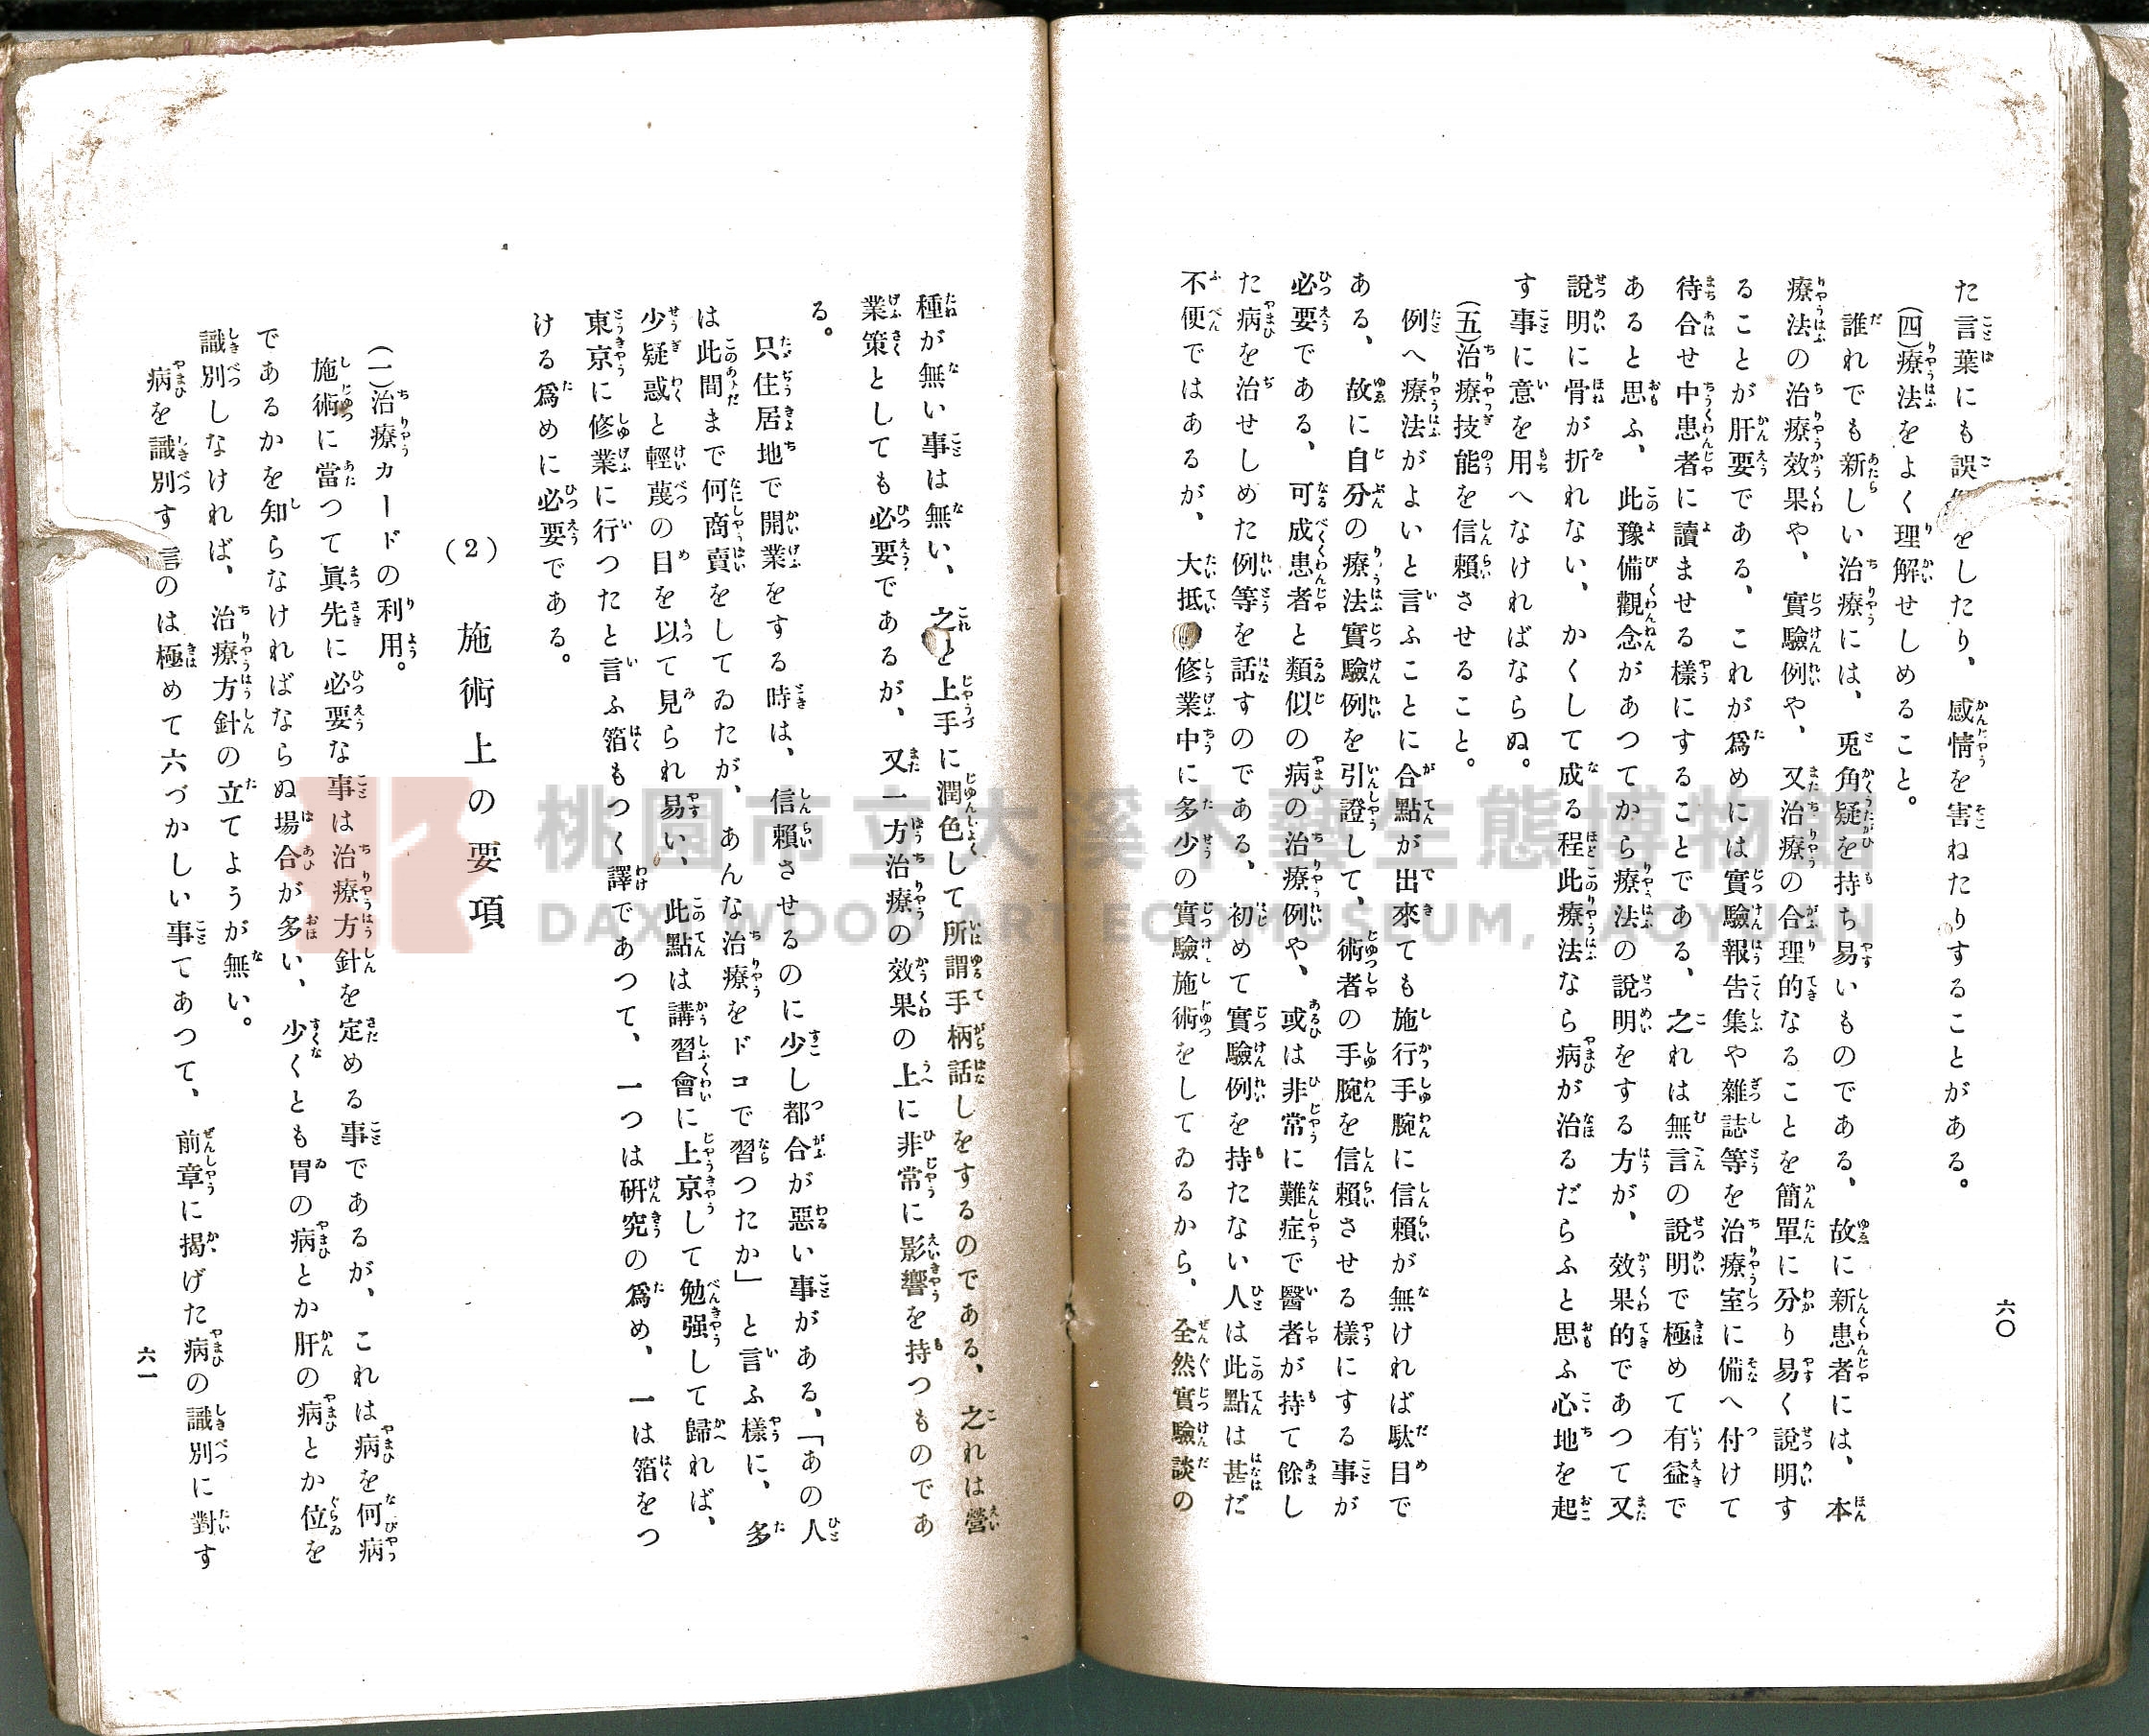 六〇
た言葉にも誤をしたり、感情を害ねたりすることがある。
(四)療法をよく理解せしめること。
誰れでも新しい治療には、兎角疑を持ち易いものである、故に新患者には、本
療法の治療效果や、實驗例や、又治療の合理的なることを簡單に分り易く說明す
ることが肝要である、これが爲めには實驗報告集や雜誌等を治療室に備へ付けて
待合せ中患者に讀ませる樣にすることである、之れは無言の說明で極めて有益で
あると思ふ、此豫備觀念があつてから療法の說明をする方が、效果的であつて又
說明に骨が折れない、かくして成る程此療法なら病が治るだらふと思ふ心地を起
す事に意を用へなければならぬ。
(五)治療技能を信賴させること。
例へ療法がよいと言ふことに合點が出來ても施行手腕に信賴が無ければ駄目で
ある、故に自分の療法實驗例を引證して、術者の手腕を信賴させる樣にする事が
必要である、可成患者と類似の病の治療例や、或は非常に難症で醫者が持て餘し
た病を治せしめた例等を話すのである、初めて實驗例を持たない人は此點は甚だ
不便ではあるが、大抵修業中に多少の實驗施術をしてゐるから、全然實驗談の
種が無い事は無い、之と上手に潤色して所謂手柄話しをするのである、之れは營
業策としても必要であるが、又一方治療の效果の上に非常に影響を持つものであ
る。
只住居地で開業をする時は、信賴させるのに少し都合が惡い事がある、「あの人
は此間まで何商賣をしてゐたが、あんな治療をドコで習つたか」と言ふ樣に、多
少疑惑と輕蔑の目を以て見られ易い、此點は講習會に上京して勉强して歸れば、
東京に修業に行つたと言ふ箔もつく譯であつて、一つは硏究の爲め、一は箔をつ
ける爲めに必要である。
(2) 施術上の要項
(一)治療カードの利用。
施術に當つて眞先に必要な事は治療方針を定める事であるが、これは病を何病
であるかを知らなければならぬ場合が多い、少くとも胃の病とか肝の病とか位を
識別しなければ、治療方針の立てようが無い。
病を識別す言のは極めて六づかしい事てあつて、前章に揭げた病の識別に對す
六一
桃園市立大溪木藝生態博物館
DAXI WOOD ART ECOMUSEUM, TAOYUAN